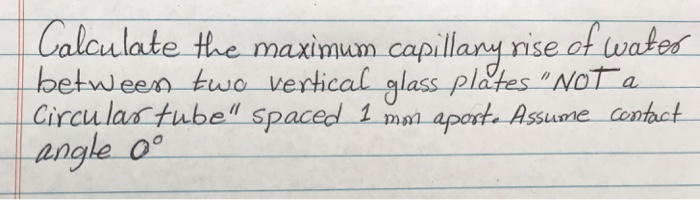 Calculate the maximum capillary rise of water
between two vertical glass plates "NOT a
Circular tube" spaced 1 mm apart. Assume contact
angle 0°